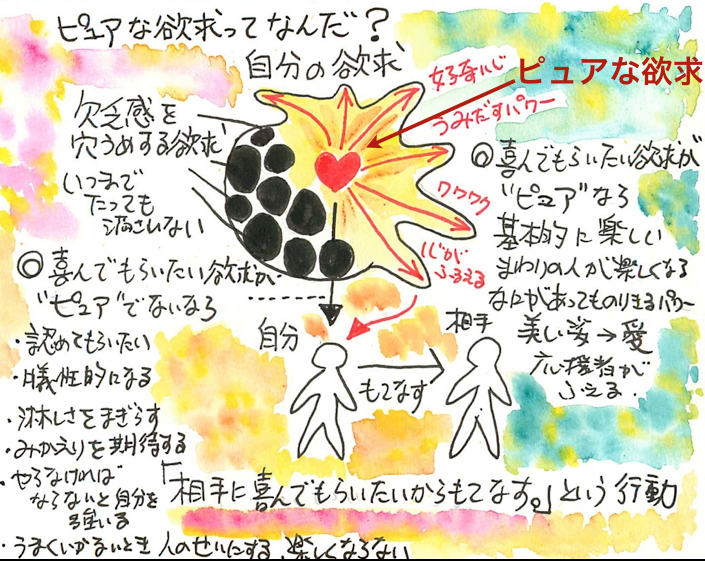 ピュアな欲求ってなんだ?
自分の欲求
好奇心
ピュアな欲求
うみだすパワー
欠乏感を
穴うめする欲求
いつまで
たっても
満たされない
ワクワク
心が
ふるえる
◎喜んでもらいたい欲求が
"ピュア"なら
基本的に楽しい
まわりの人が楽しくなる
なにがあってものりきるパワー
美しい姿→愛
応援者が
ふえる
◎喜んでもらいたい欲求が
"ピュア"でないなら
・認めてもらいたい
・犠性的になる
・淋しさをまぎらす
・みかえりを期待する
・やらなければ
ならないと自分を
強いる
・うまくいかないとき人のせいにする、楽しくならない
自分
相手
もてなす
「相手に喜んでもらいたいからもてなす。」という行動